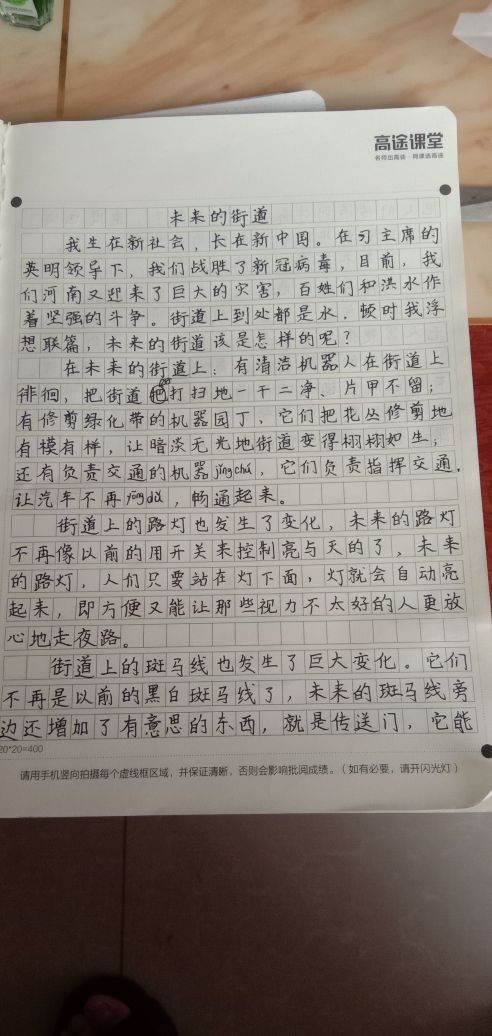 高途课堂
名师出高徒·网课选高途
未来的街道
我生在新社会，长在新中国。在习主席的
英明领导下，我们战胜了新冠病毒，目前，我
们河南又迎来了巨大的灾害，百姓们和洪水作
着坚强的斗争。街道上到处都是水。顿时我浮
想联篇，未来的街道该是怎样的呢？
在未来的街道上：有清洁机器人在街道上
徘徊，把街道打扫地一干二净、片甲不留；
有修剪绿化带的机器园丁，它们把花丛修剪地
有模有样，让暗淡无光地街道变得栩栩如生；
还有负责交通的机器jǐngchá，它们负责指挥交通，
让汽车不再yōngdǔ，畅通起来。
街道上的路灯也发生了变化，未来的路灯
不再像以前的用开关来控制亮与灭的了，未来
的路灯，人们只要站在灯下面，灯就会自动亮
起来，即方便又能让那些视力不太好的人更放
心地走夜路。
街道上的斑马线也发生了巨大变化。它们
不再是以前的黑白斑马线了，未来的斑马线旁
边还增加了有意思的东西，就是传送门，它能
20*20=400
请用手机竖向拍摄每个虚线框区域，并保证清晰，否则会影响批阅成绩。（如有必要，请开闪光灯）